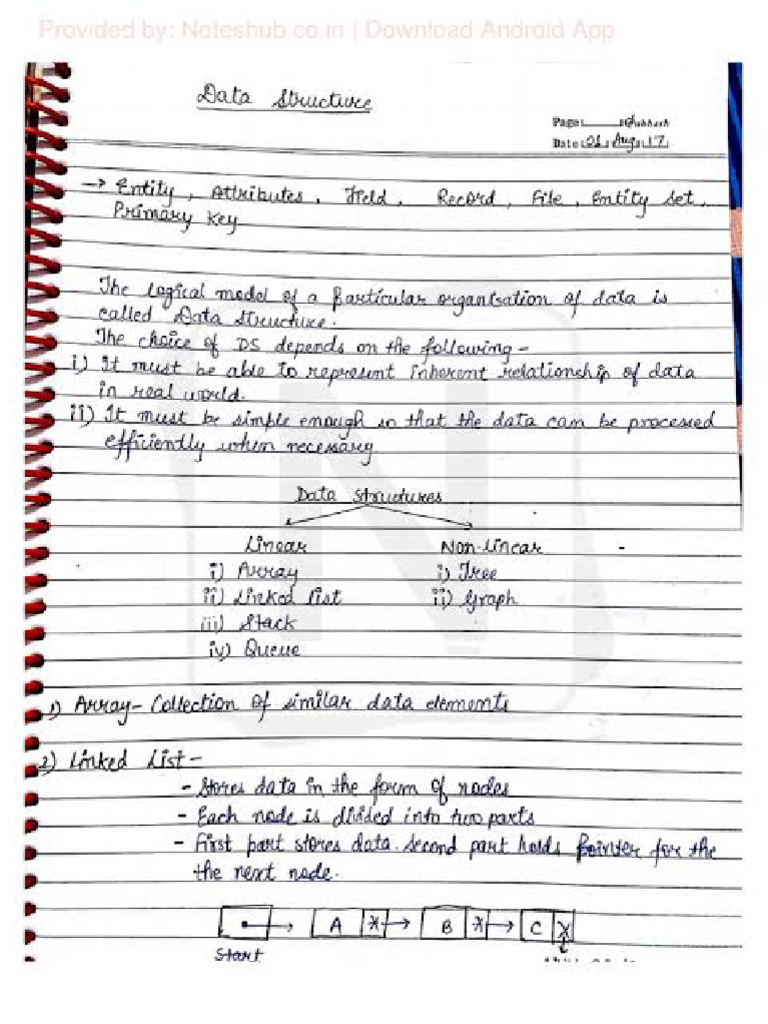 Provided by: Noteshub.co.in | Download Android App
Data Structure
Page:
Date: 01 Aug 17
→ Entity, Attributes, Field, Record, File, Entity Set,
Primary Key
The logical model of a particular organisation of data is
called Data Structure.
The choice of DS depends on the following -
i) It must be able to represent inherent relationship of data
in real world.
ii) It must be simple enough so that the data can be processed
efficiently when necessary
Data Structures
Linear Non-linear
i) Array i) Tree
ii) Linked list ii) Graph
iii) Stack
iv) Queue
1) Array - Collection of similar data elements
2) Linked List -
- Stores data in the form of nodes
- Each node is divided into two parts
- First part stores data. Second part holds pointer for the
the next node.
A B C
Start